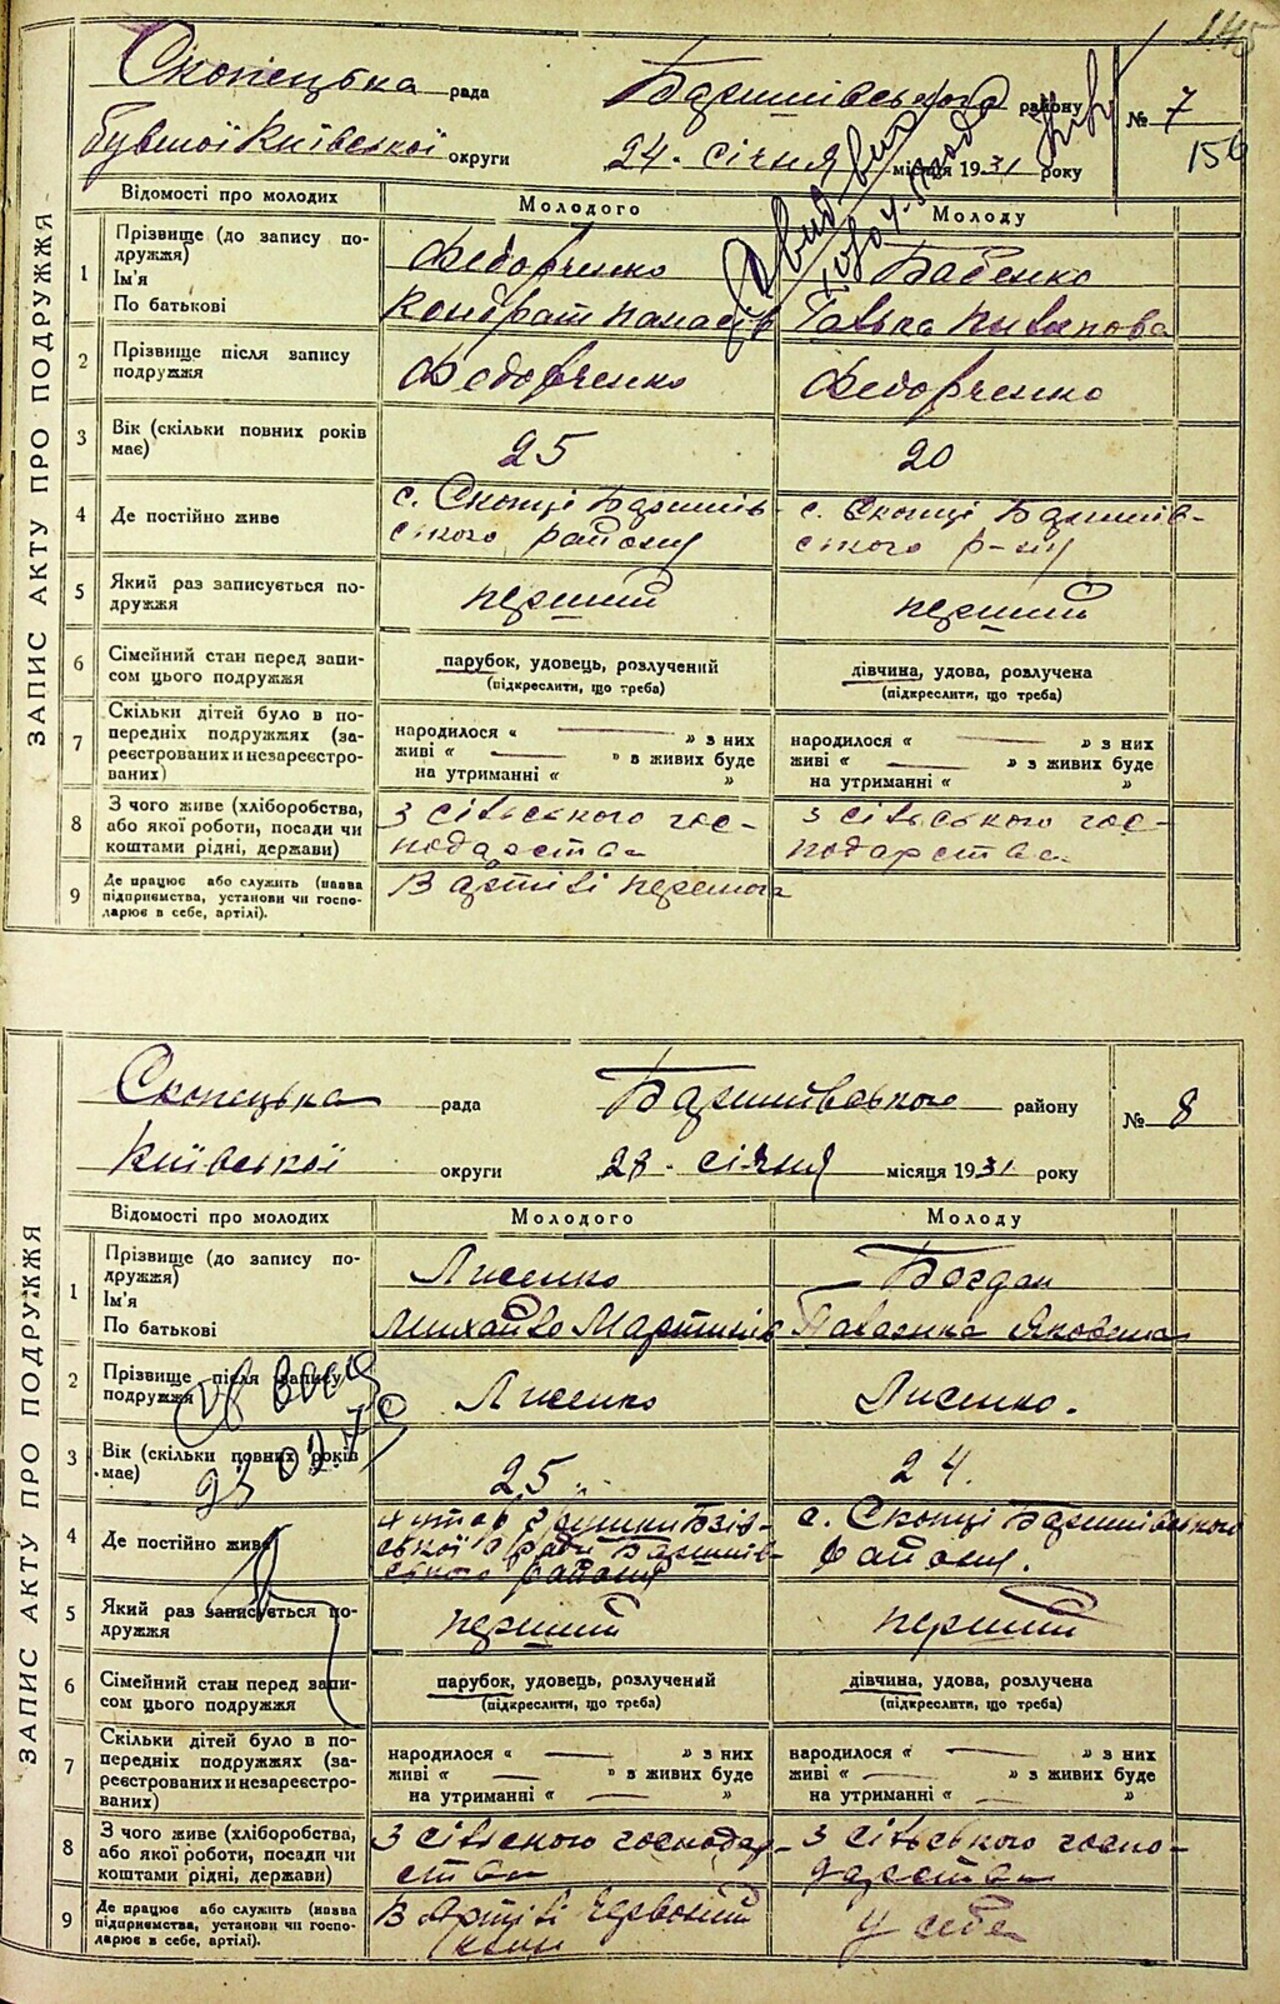 145
Скопецька рада Баришівського району № 7
156
бувшої Київської округи 24. січня місяця 1931 року
ЗАПИС АКТУ ПРО ПОДРУЖЖЯ
Відомості про молодих Молодого Молоду
1 Прізвище (до запису подружжя) Федорченко Бабенко
Ім'я
По батькові Кондрат Панасів Галька
2 Прізвище після запису подружжя Федорченко Федорченко
3 Вік (скільки повних років має) 25 20
4 Де постійно живе с. Скопці Баришів- с. Скопці Баришів-
ського району ського р-ну
5 Який раз записується по-
дружжя перший перший
6 Сімейний стан перед запи- парубок, удовець, розлучений дівчина, удова, розлучена
сом цього подружжя (підкреслити, що треба) (підкреслити, що треба)
7 Скільки дітей було в по-
передніх подружжях (за- народилося « — » з них народилося « — » з них
реєстрованих и незареєстро- живі « — » в живих буде живі « — » з живих буде
ваних) на утриманні « » на утриманні « »
8 З чого живе (хліборобства, З сільського гос- З сільського гос-
або якої роботи, посади чи
коштами рідні, держави) подарства подарства
9 Де працює або служить (назва В артілі перемога
підприємства, установи чи госпо-
дарює в себе, артілі).
Скопецька рада Баришівського району № 8
Київської округи 28. січня місяця 1931 року
ЗАПИС АКТУ ПРО ПОДРУЖЖЯ
Відомості про молодих Молодого Молоду
1 Прізвище (до запису по-
дружжя) Лисенко Богдан
Ім'я
По батькові Михайло Мартинів Палажка Яковна
2 Прізвище після запису
подружжя Лисенко Лисенко.
3 Вік (скільки повних років
має) 25. 24.
4 Де постійно живе хутор Бзів- с. Скопці Баришівського
ської ради Баришів- району.
ського району
5 Який раз записується по-
дружжя перший перший
6 Сімейний стан перед запи- парубок, удовець, розлучений дівчина, удова, розлучена
сом цього подружжя (підкреслити, що треба) (підкреслити, що треба)
7 Скільки дітей було в по-
передніх подружжях (за- народилося « — » з них народилося « — » з них
реєстрованих и незареєстро- живі « — » в живих буде живі « — » з живих буде
ваних) на утриманні « — » на утриманні « — »
8 З чого живе (хліборобства, З сільського господар- З сільського госпо-
або якої роботи, посади чи
коштами рідні, держави) ства дарства
9 Де працює або служить (назва В Артілі Червоний У себе
підприємства, установи чи госпо-
дарює в себе, артілі).